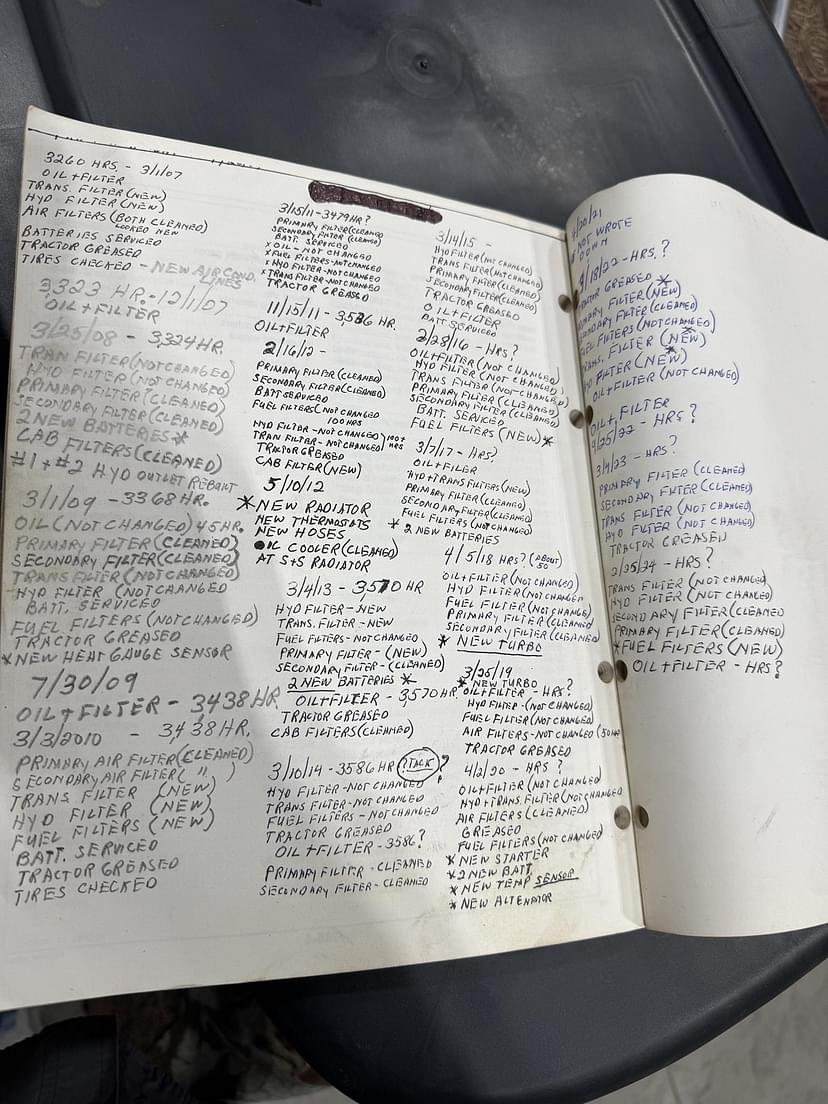 3260 HRS. - 3/1/07
OIL + FILTER
TRANS. FILTER (NEW)
HYD FILTER (NEW)
AIR FILTERS (BOTH CLEANED)
LOOKED NEW
BATTERIES SERVICED
TRACTOR GREASED
TIRES CHECKED - NEW AIR COND.
LINES
3,323 HR. - 12/1/07
OIL + FILTER
3/25/08 - 3,324 HR.
TRAN FILTER (NOT CHANGED)
HYD FILTER (NOT CHANGED)
PRIMARY FILTER (CLEANED)
SECONDARY FILTER (CLEANED)
2 NEW BATTERIES *
CAB FILTERS (CLEANED)
#1 + #2 HYD OUTLET REBUILT
3/1/09 - 3368 HR.
OIL (NOT CHANGED) 45 HR.
PRIMARY FILTER (CLEANED)
SECONDARY FILTER (CLEANED)
TRANS FILTER (NOT CHANGED)
HYD FILTER (NOT CHANGED
BATT. SERVICED
FUEL FILTERS (NOT CHANGED)
TRACTOR GREASED
* NEW HEAT GAUGE SENSOR
7/30/09
OIL + FILTER - 3438 HR.
3/3/2010 - 3,438 HR.
PRIMARY AIR FILTER (CLEANED)
SECONDARY AIR FILTER ( " )
TRANS FILTER (NEW)
HYD FILTER (NEW)
FUEL FILTERS (NEW)
BATT. SERVICED
TRACTOR GREASED
TIRES CHECKED
3/15/11 - 3479 HR?
PRIMARY FILTER (CLEANED
SECONDARY FILTER (CLEANED)
BATT SERVICED
x OIL - NOT CHANGED
x FUEL FILTERS - NOT CHANGED
x HYD FILTER - NOT CHANGED
x TRANS FILTER - NOT CHANGED
TRACTOR GREASED
11/15/11 - 3,536 HR.
OIL + FILTER
2/16/12 -
PRIMARY FILTER (CLEANED)
SECONDARY FILTER (CLEANED)
BATT SERVICED
FUEL FILTERS (NOT CHANGED
100 HRS
HYD FILTER - NOT CHANGED
TRAN FILTER - NOT CHANGED) 100+ HRS
TRACTOR GREASED
CAB FILTER (NEW)
5/10/12
* NEW RADIATOR
NEW THERMOSTATS
NEW HOSES
OIL COOLER (CLEANED)
AT S+S RADIATOR
3/4/13 - 3,570 HR
HYD FILTER - NEW
TRANS. FILTER - NEW
FUEL FILTERS - NOT CHANGED
PRIMARY FILTER - (NEW)
SECONDARY FILTER - (CLEANED)
2 NEW BATTERIES *
OIL + FILTER - 3,570 HR.
TRACTOR GREASED
CAB FILTERS (CLEANED)
3/10/14 - 3586 HR (?TACK)?
HYD FILTER - NOT CHANGED
TRANS FILTER - NOT CHANGED
FUEL FILTERS - NOT CHANGED
TRACTOR GREASED
OIL + FILTER - 3586?
PRIMARY FILTER - CLEANED
SECONDARY FILTER - CLEANED
3/14/15 -
HYD FILTER (NOT CHANGED)
TRANS FILTER (NOT CHANGED)
PRIMARY FILTER (CLEANED)
SECONDARY FILTER (CLEANED)
TRACTOR GREASED
OIL + FILTER
BATT SERVICED
2/28/16 - HRS?
OIL + FILTER (NOT CHANGED)
HYD FILTER (NOT CHANGED)
TRANS FILTER (NOT CHANGED)
PRIMARY FILTER (CLEANED)
SECONDARY FILTER (CLEANED)
BATT. SERVICED
FUEL FILTERS (NEW) *
3/7/17 - HRS?
OIL + FILER
HYD + TRANS FILTERS (NEW)
PRIMARY FILTER (CLEANED)
SECONDARY FILTER (CLEANED)
FUEL FILTERS (NOT CHANGED)
* 2 NEW BATTERIES
4/5/18 HRS? (ABOUT 50
OIL + FILTER (NOT CHANGED)
HYD FILTER (NOT CHANGED)
FUEL FILTER (NOT CHANGED)
PRIMARY FILTER (CLEANED)
SECONDARY FILTER (CLEANED
* NEW TURBO
3/25/19
* NEW TURBO
OIL + FILTER - HRS?
HYD FILTER - (NOT CHANGED)
FUEL FILTER (NOT CHANGED)
AIR FILTERS - NOT CHANGED (50 HR
TRACTOR GREASED
4/2/20 - HRS?
OIL + FILTER (NOT CHANGED)
HYD + TRANS. FILTER (NOT CHANGED
AIR FILTERS (CLEANED)
GREASED
FUEL FILTERS (NOT CHANGED)
* NEW STARTER
* 2 NEW BATT
* NEW TEMP SENSOR
* NEW ALTENATOR
/20/21
NOT WROTE
DOWN
4/18/22 - HRS.?
TRACTOR GREASED
PRIMARY FILTER (NEW) *
SECONDARY FILTER (CLEANED)
FUEL FILTERS (NOT CHANGED)
TRANS. FILTER (NEW) *
HYD FILTER (NEW) *
OIL + FILTER (NOT CHANGED)
OIL + FILTER
/25/22 - HRS?
3/4/23 - HRS?
PRIMARY FILTER (CLEANED)
SECONDARY FILTER (CLEANED)
TRANS FILTER (NOT CHANGED)
HYD FILTER (NOT CHANGED)
TRACTOR GREASED
2/25/24 - HRS?
TRANS FILTER (NOT CHANGED)
HYD FILTER (NOT CHANGED)
SECONDARY FILTER (CLEANED
PRIMARY FILTER (CLEANED)
* FUEL FILTERS (NEW)
OIL + FILTER - HRS?